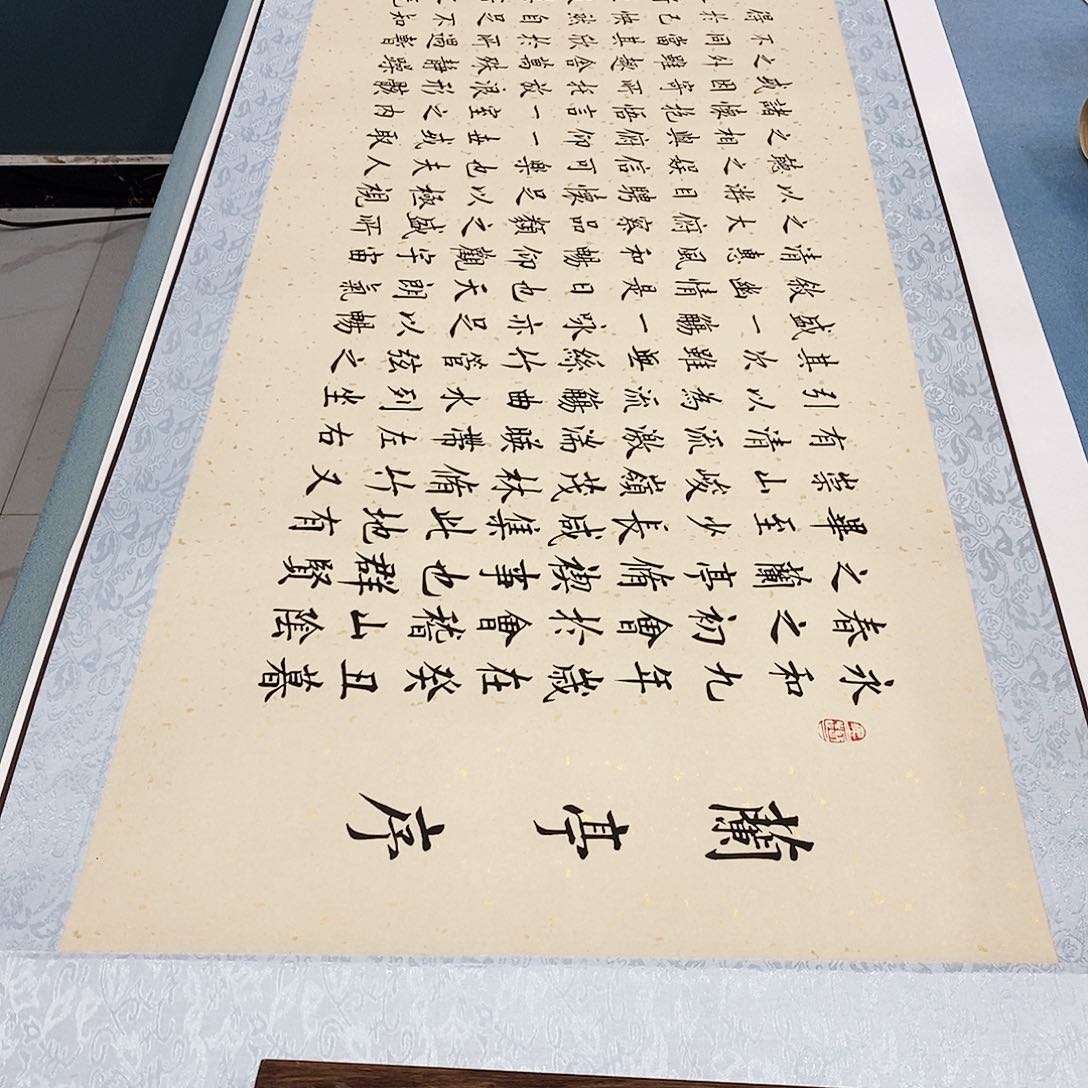 蘭亭序
永和九年歲在癸丑暮
春之初會於會稽山陰
之蘭亭脩禊事也群賢
畢至少長咸集此地有
崇山峻嶺茂林脩竹又
有清流激湍暎帶左右
引以為流觴曲水列坐
其次雖無絲竹管弦之
盛一觴一咏亦足以暢
敘幽情是日也天朗氣
清惠風和暢仰觀宇宙
之大俯察品類之盛所
以游目騁懷足以極視
聽之娛信可樂也夫人
之相與俯仰一世或取
諸懷抱悟言一室之內
或因寄所托放浪形骸
之外雖趣舍萬殊靜躁
不同當其欣於所遇暫
得於己快然自足不知